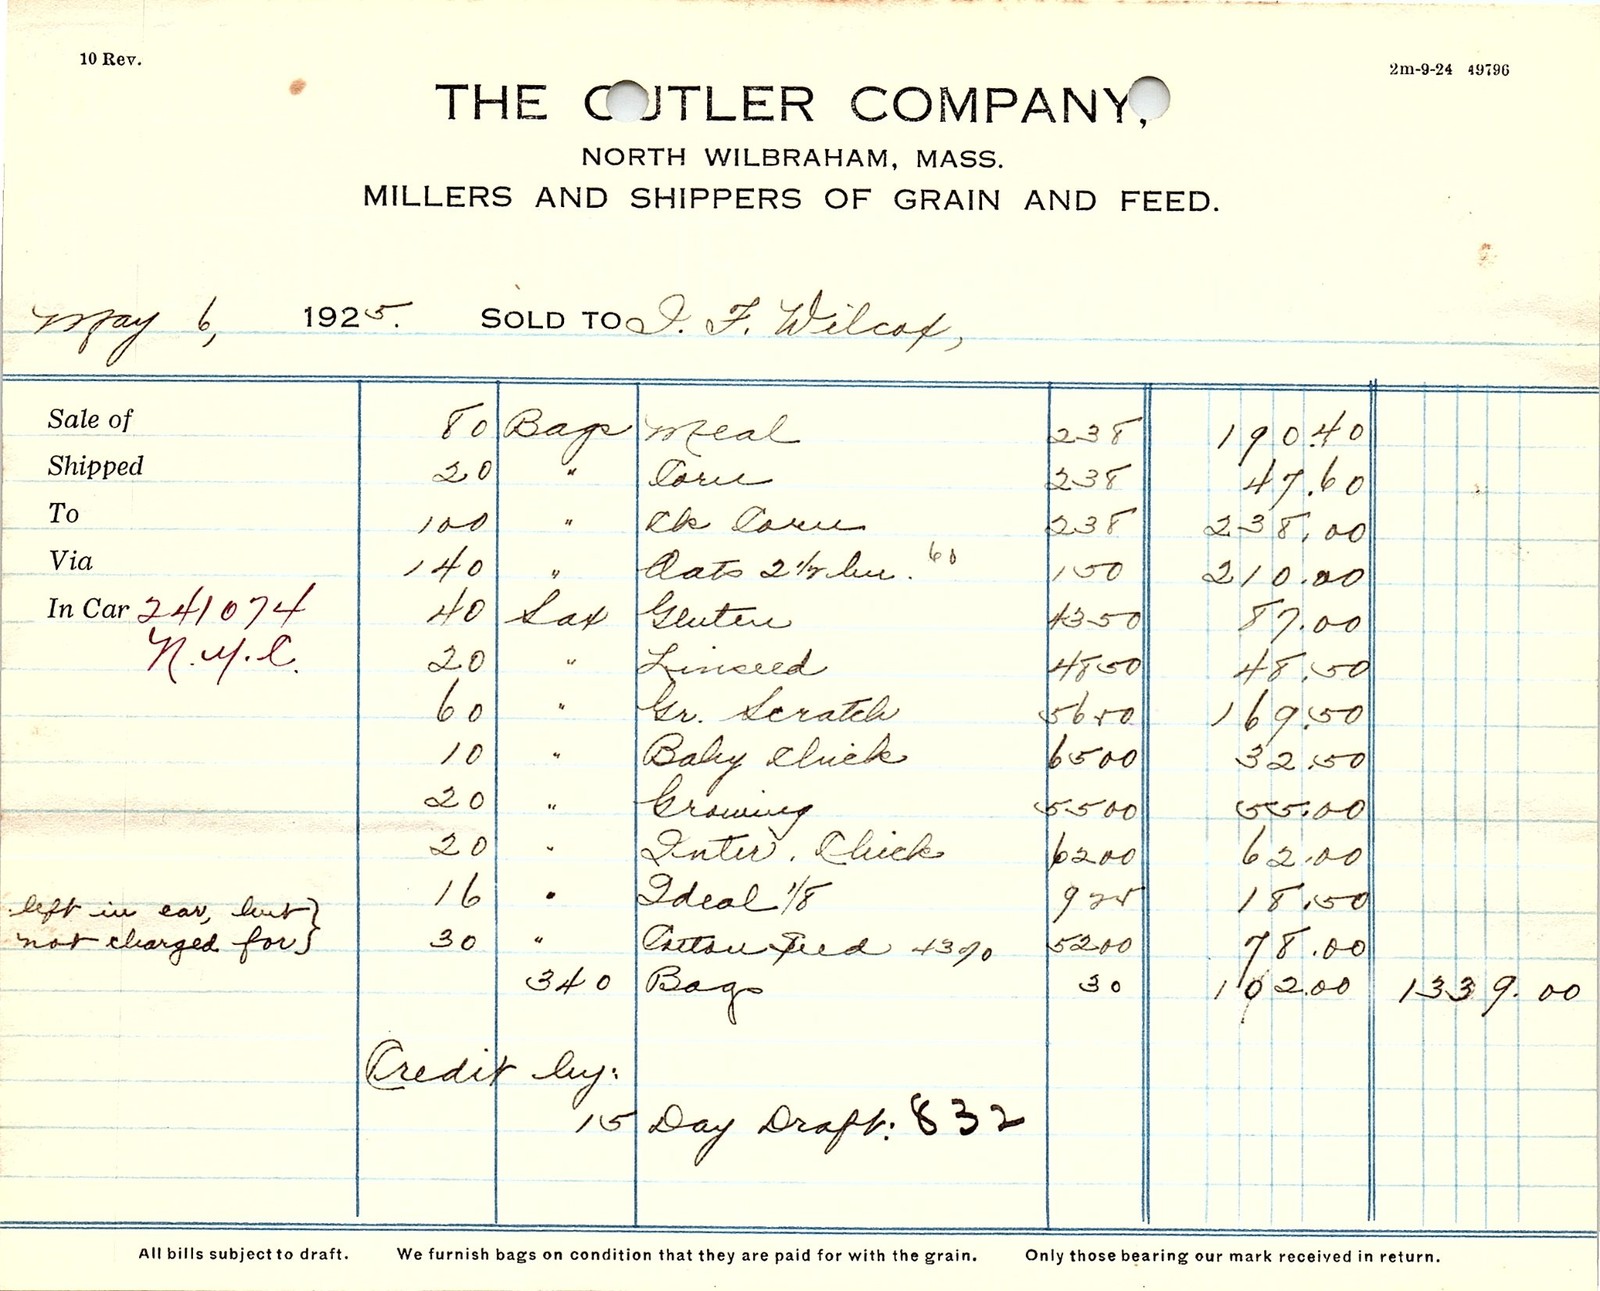 10 Rev.
2m-9-24 49796
THE CUTLER COMPANY,
NORTH WILBRAHAM, MASS.
MILLERS AND SHIPPERS OF GRAIN AND FEED.
May 6, 1925. SOLD TO I. F. Wilcox,
Sale of 80 Bags Meal 238 190.40
Shipped 20 " Corn 238 47.60
To 100 " Ck Corn 238 238.00
Via 140 " Oats 2 1/2 bu. 60 150 210.00
In Car 241074 40 Sax Gluten 4350 87.00
N.Y.C. 20 " Linseed 4850 48.50
60 " Gr. Scratch 5650 169.50
10 " Baby Chick 6500 32.50
20 " Growing 5500 55.00
20 " Inter. Chick 6200 62.00
left in car, but 16 " Ideal 1/8 925 18.50
not charged for 30 " Cotton Seed 43% 5200 78.00
340 Bags 30 102.00 1339.00
Credit by:
15 Day Draft: 832
All bills subject to draft. We furnish bags on condition that they are paid for with the grain. Only those bearing our mark received in return.